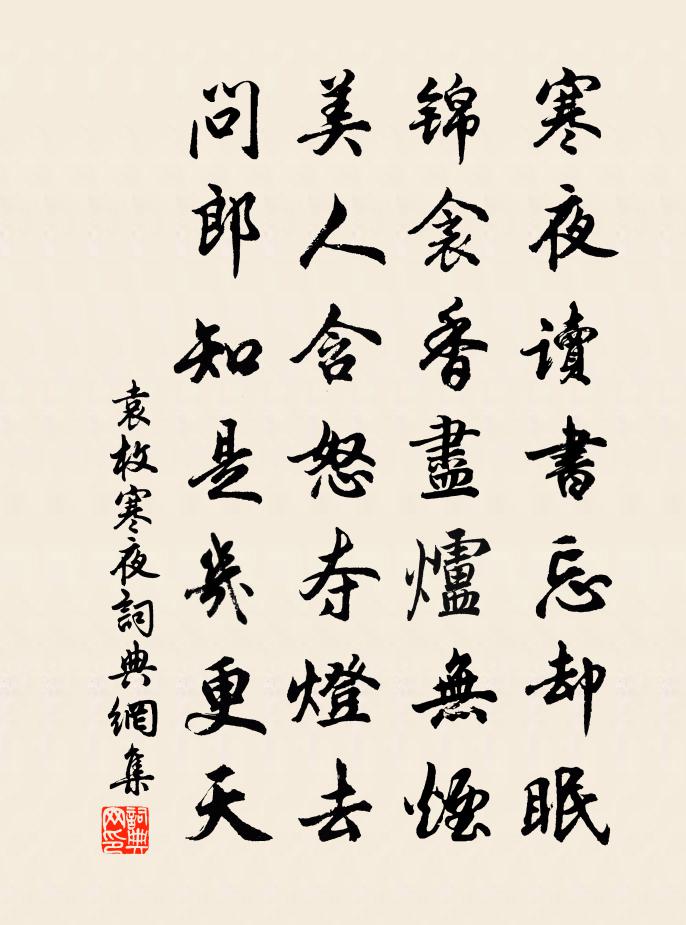 寒夜讀書忘却眠
锦衾香盡爐無煙
美人含怒夺燈去
問郎知是幾更天
袁枚寒夜詞典網集
詞典網印